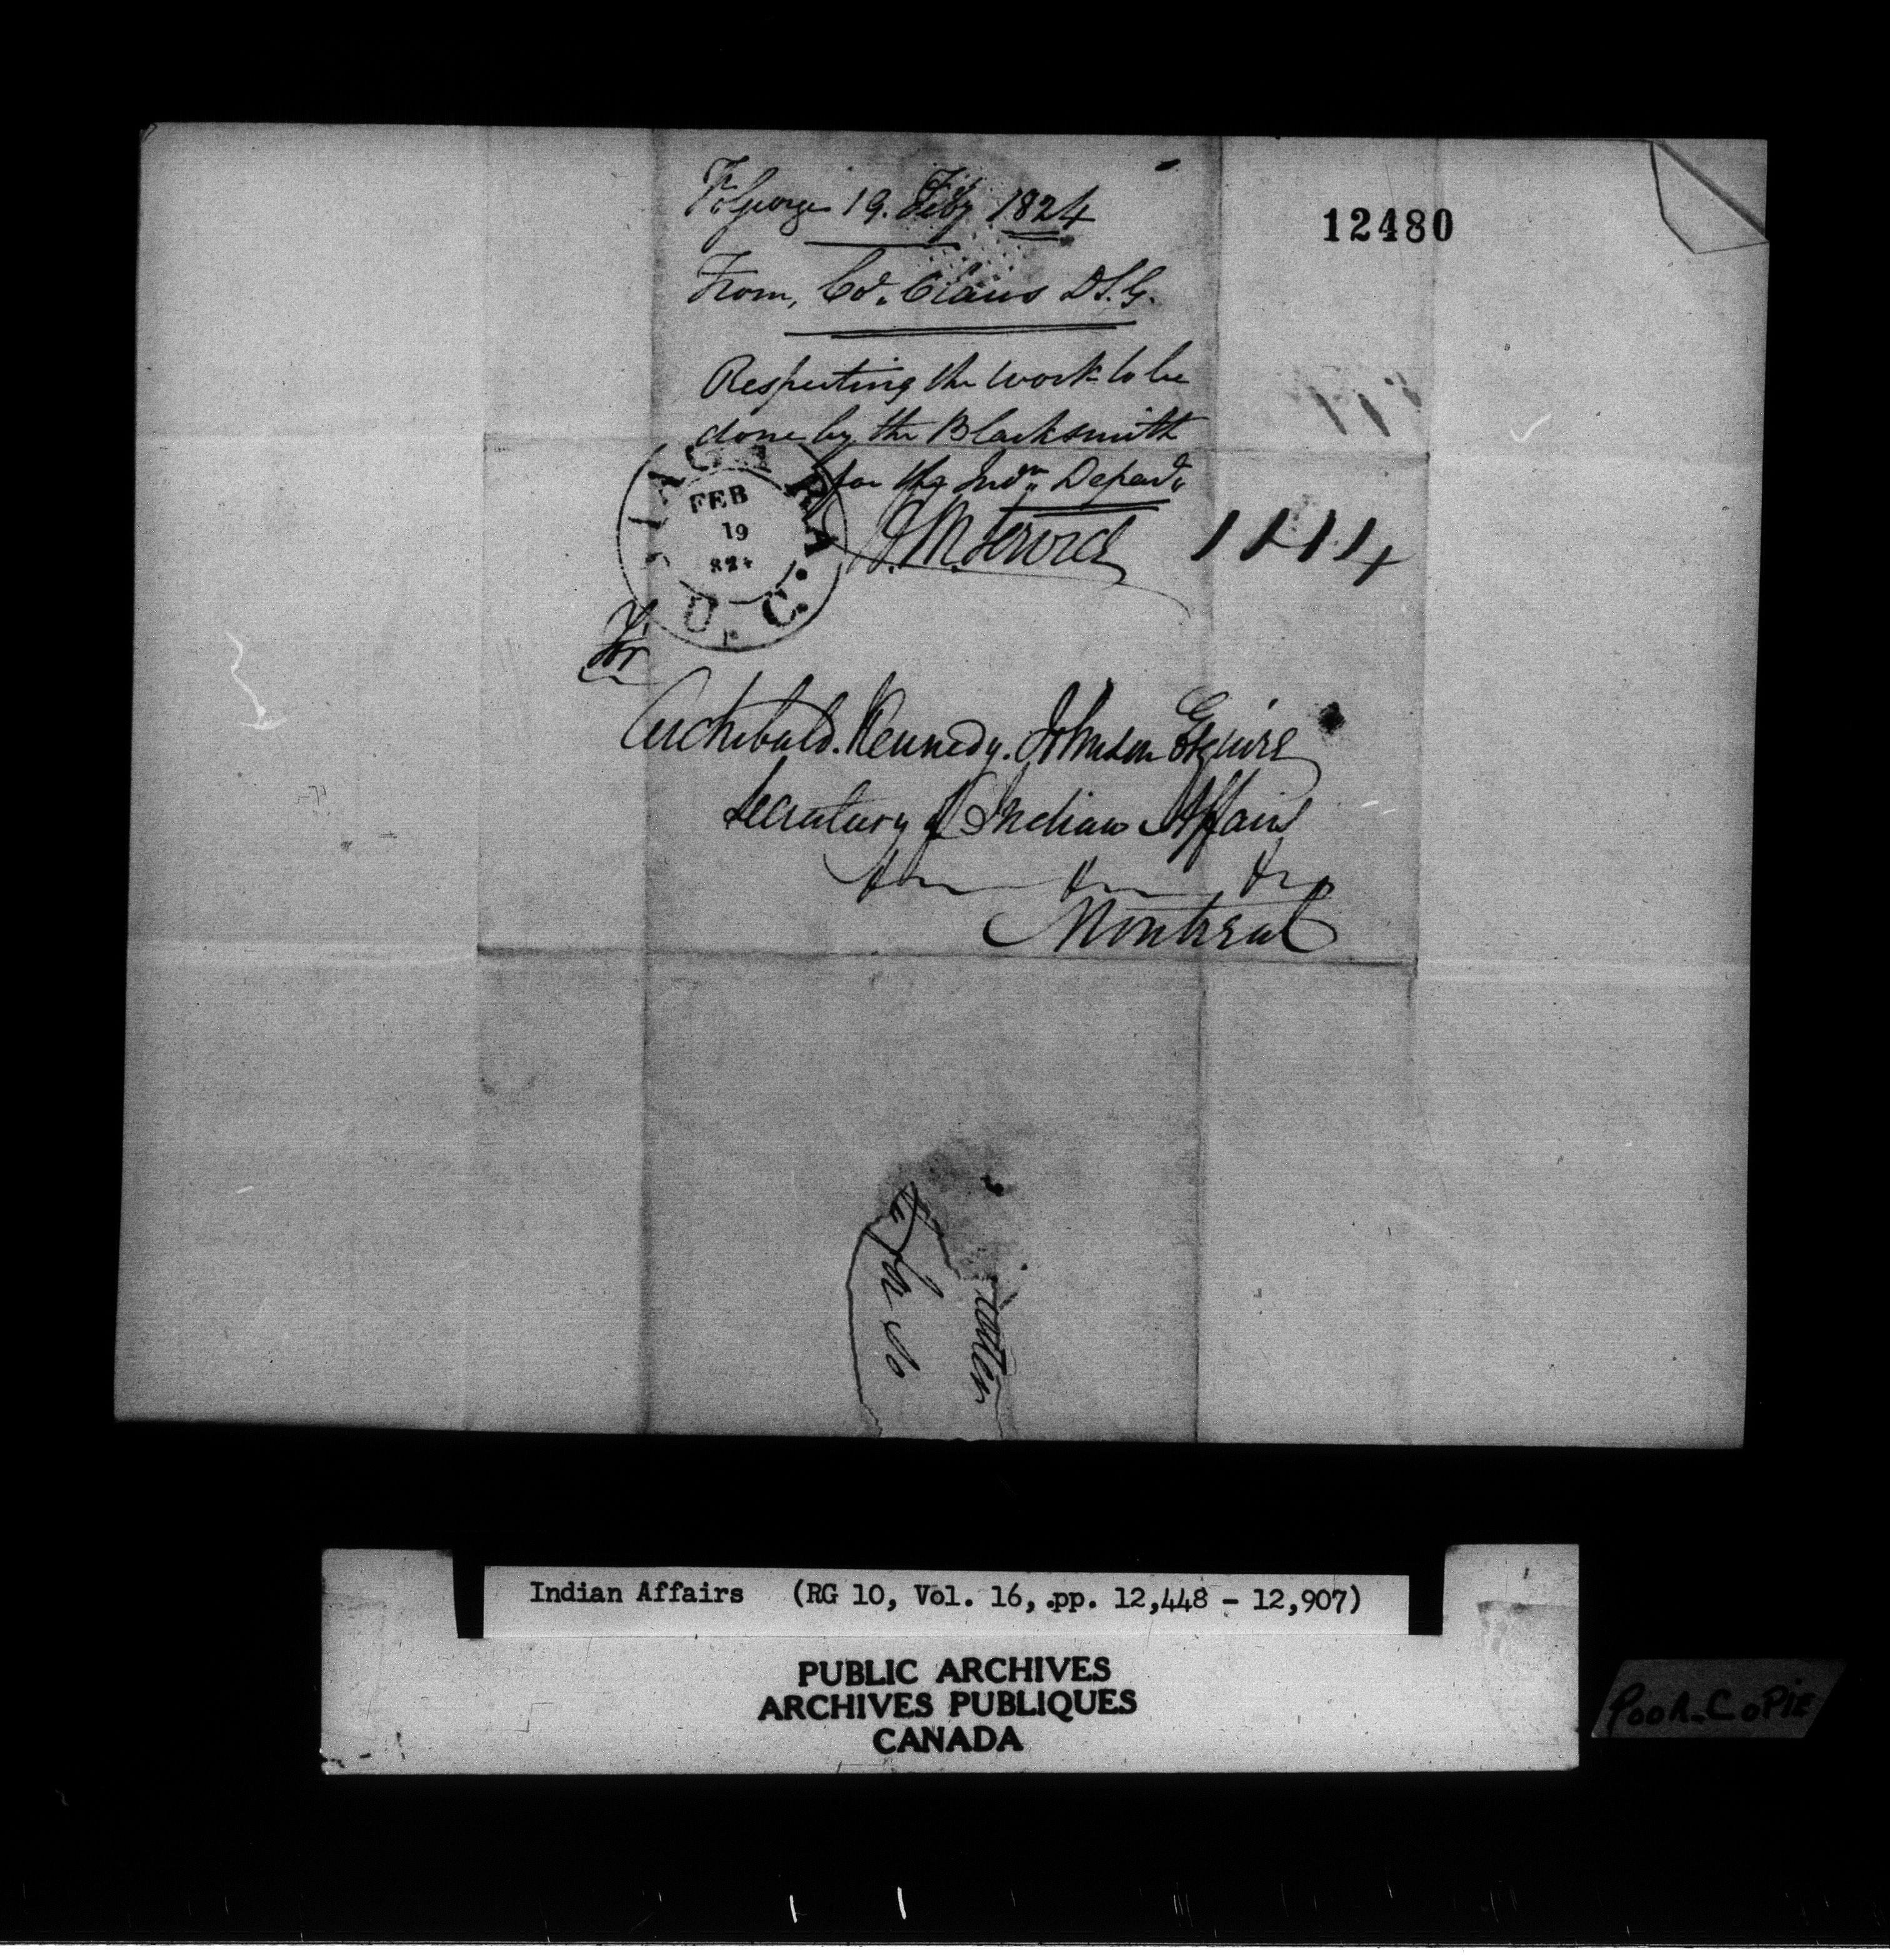 Ft George 19. Feby 1824
12480
From, Col. Claus D.S.G.
Respecting the work to be
done by the Blacksmith
for the Indn Depart
NIAGARA
FEB
19
824
U. C.
Archibald. Kennedy. Johnson Esquire
Secretary of Indian Affairs
Montreal
Indian Affairs (RG 10, Vol. 16, pp. 12,448 - 12,907)
PUBLIC ARCHIVES
ARCHIVES PUBLIQUES
CANADA
POOR COPIE